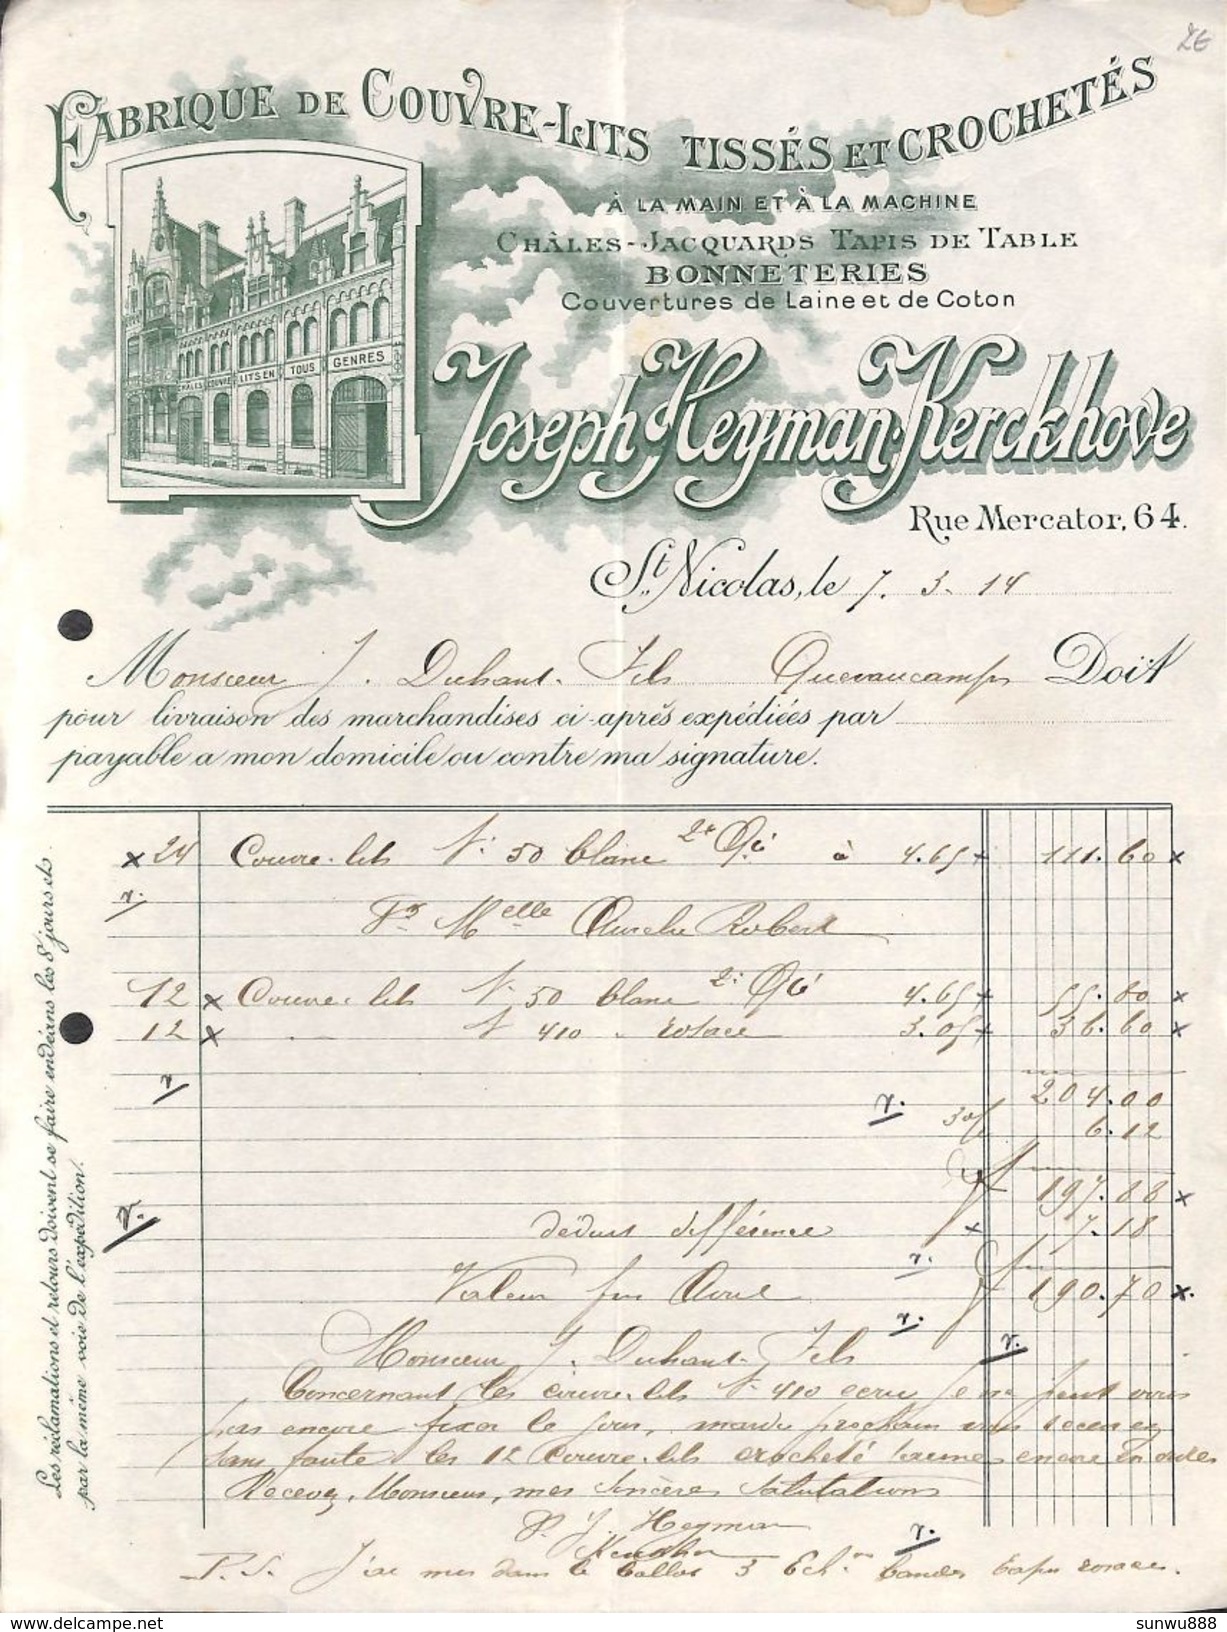 2€
FABRIQUE DE COUVRE-LITS TISSÉS ET CROCHETÉS
À LA MAIN ET À LA MACHINE
CHÂLES-JACQUARDS TAPIS DE TABLE
BONNETERIES
Couvertures de Laine et de Coton
CHÂLES COUVRE LITS EN TOUS GENRES
Joseph Heyman-Kerckhove
Rue Mercator, 64.
St Nicolas, le 7. 3. 14
Monsieur J. Duhant Fils Quevaucamps Doit
pour livraison des marchandises ci-après expédiées par
payable a mon domicile ou contre ma signature.
Les réclamations et retours doivent se faire endéans les 8 jours et
par la même voie de l'expédition.
x 24 Couvre-lits N: 50 blanc 2e Qé à 4.65 x 111.60 x
r.
Pr Melle Aurelie Robert
12 x Couvre-lits N: 50 blanc 2e Qé 4.65 x 55.80 x
12 x N 410 rosace 3.05 x 36.60 x
r. 204.00
r. 3% 6.12
197.88 x
r. déduit différence x 7.18
r.
Valeur fin Avril 190.70 x
r.
Monsieur J. Duhant Fils r.
Concernant les couvre-lits N: 410 ecru je ne peut vous
pas encore fixer le jour, mardi prochain vous recevez
sans faute les 12 couvre-lits crocheté encore en ordre
Recevez, Monsieur, mes sincères salutations
P. J. Heyman
r.
P.S. J'ai mis dans le ballot 3 Ech. bandes rosace.
www.delcampe.net
sunwu888